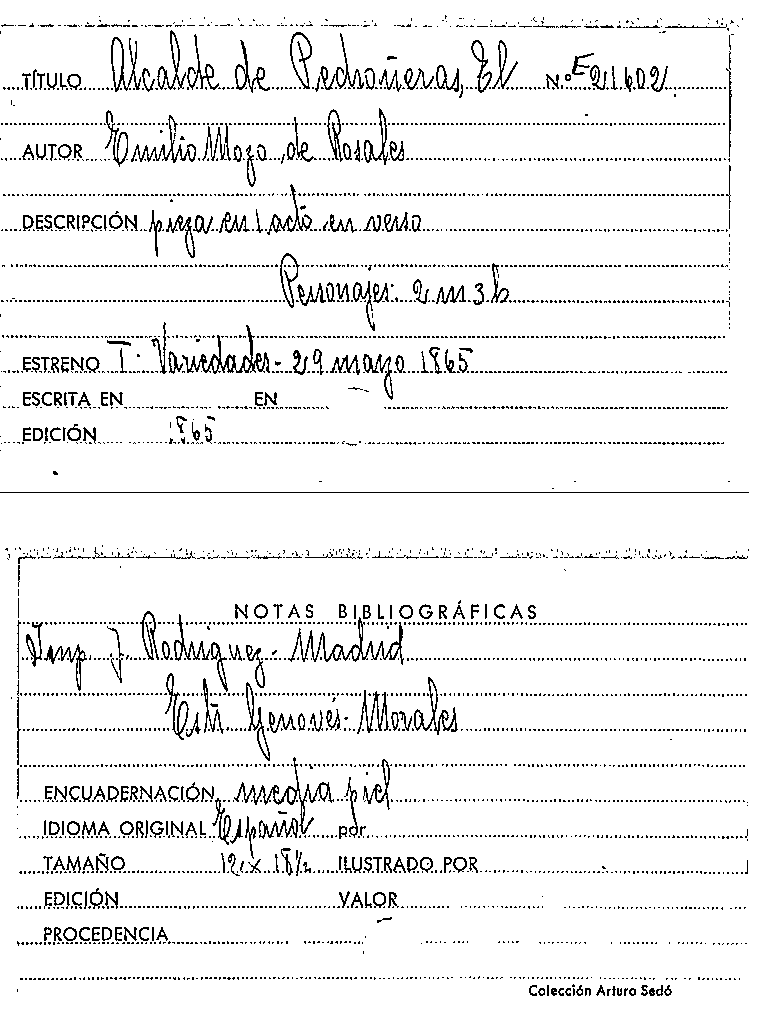 TÍTULO Alcalde de Pedroñeras, El N.º E21602
AUTOR Emilio Mozo de Rosales
DESCRIPCIÓN pieza en 1 acto en verso
Personajes: 2 m 3 h
ESTRENO T. Variedades - 29 mayo 1865
ESCRITA EN EN
EDICIÓN 1865
NOTAS BIBLIOGRÁFICAS
Imp J. Rodriguez - Madrid
Estr. Genovés - Morales
ENCUADERNACIÓN media piel
IDIOMA ORIGINAL Español por
TAMAÑO 12 x 18½ ILUSTRADO POR
EDICIÓN VALOR
PROCEDENCIA
Colección Arturo Sedó